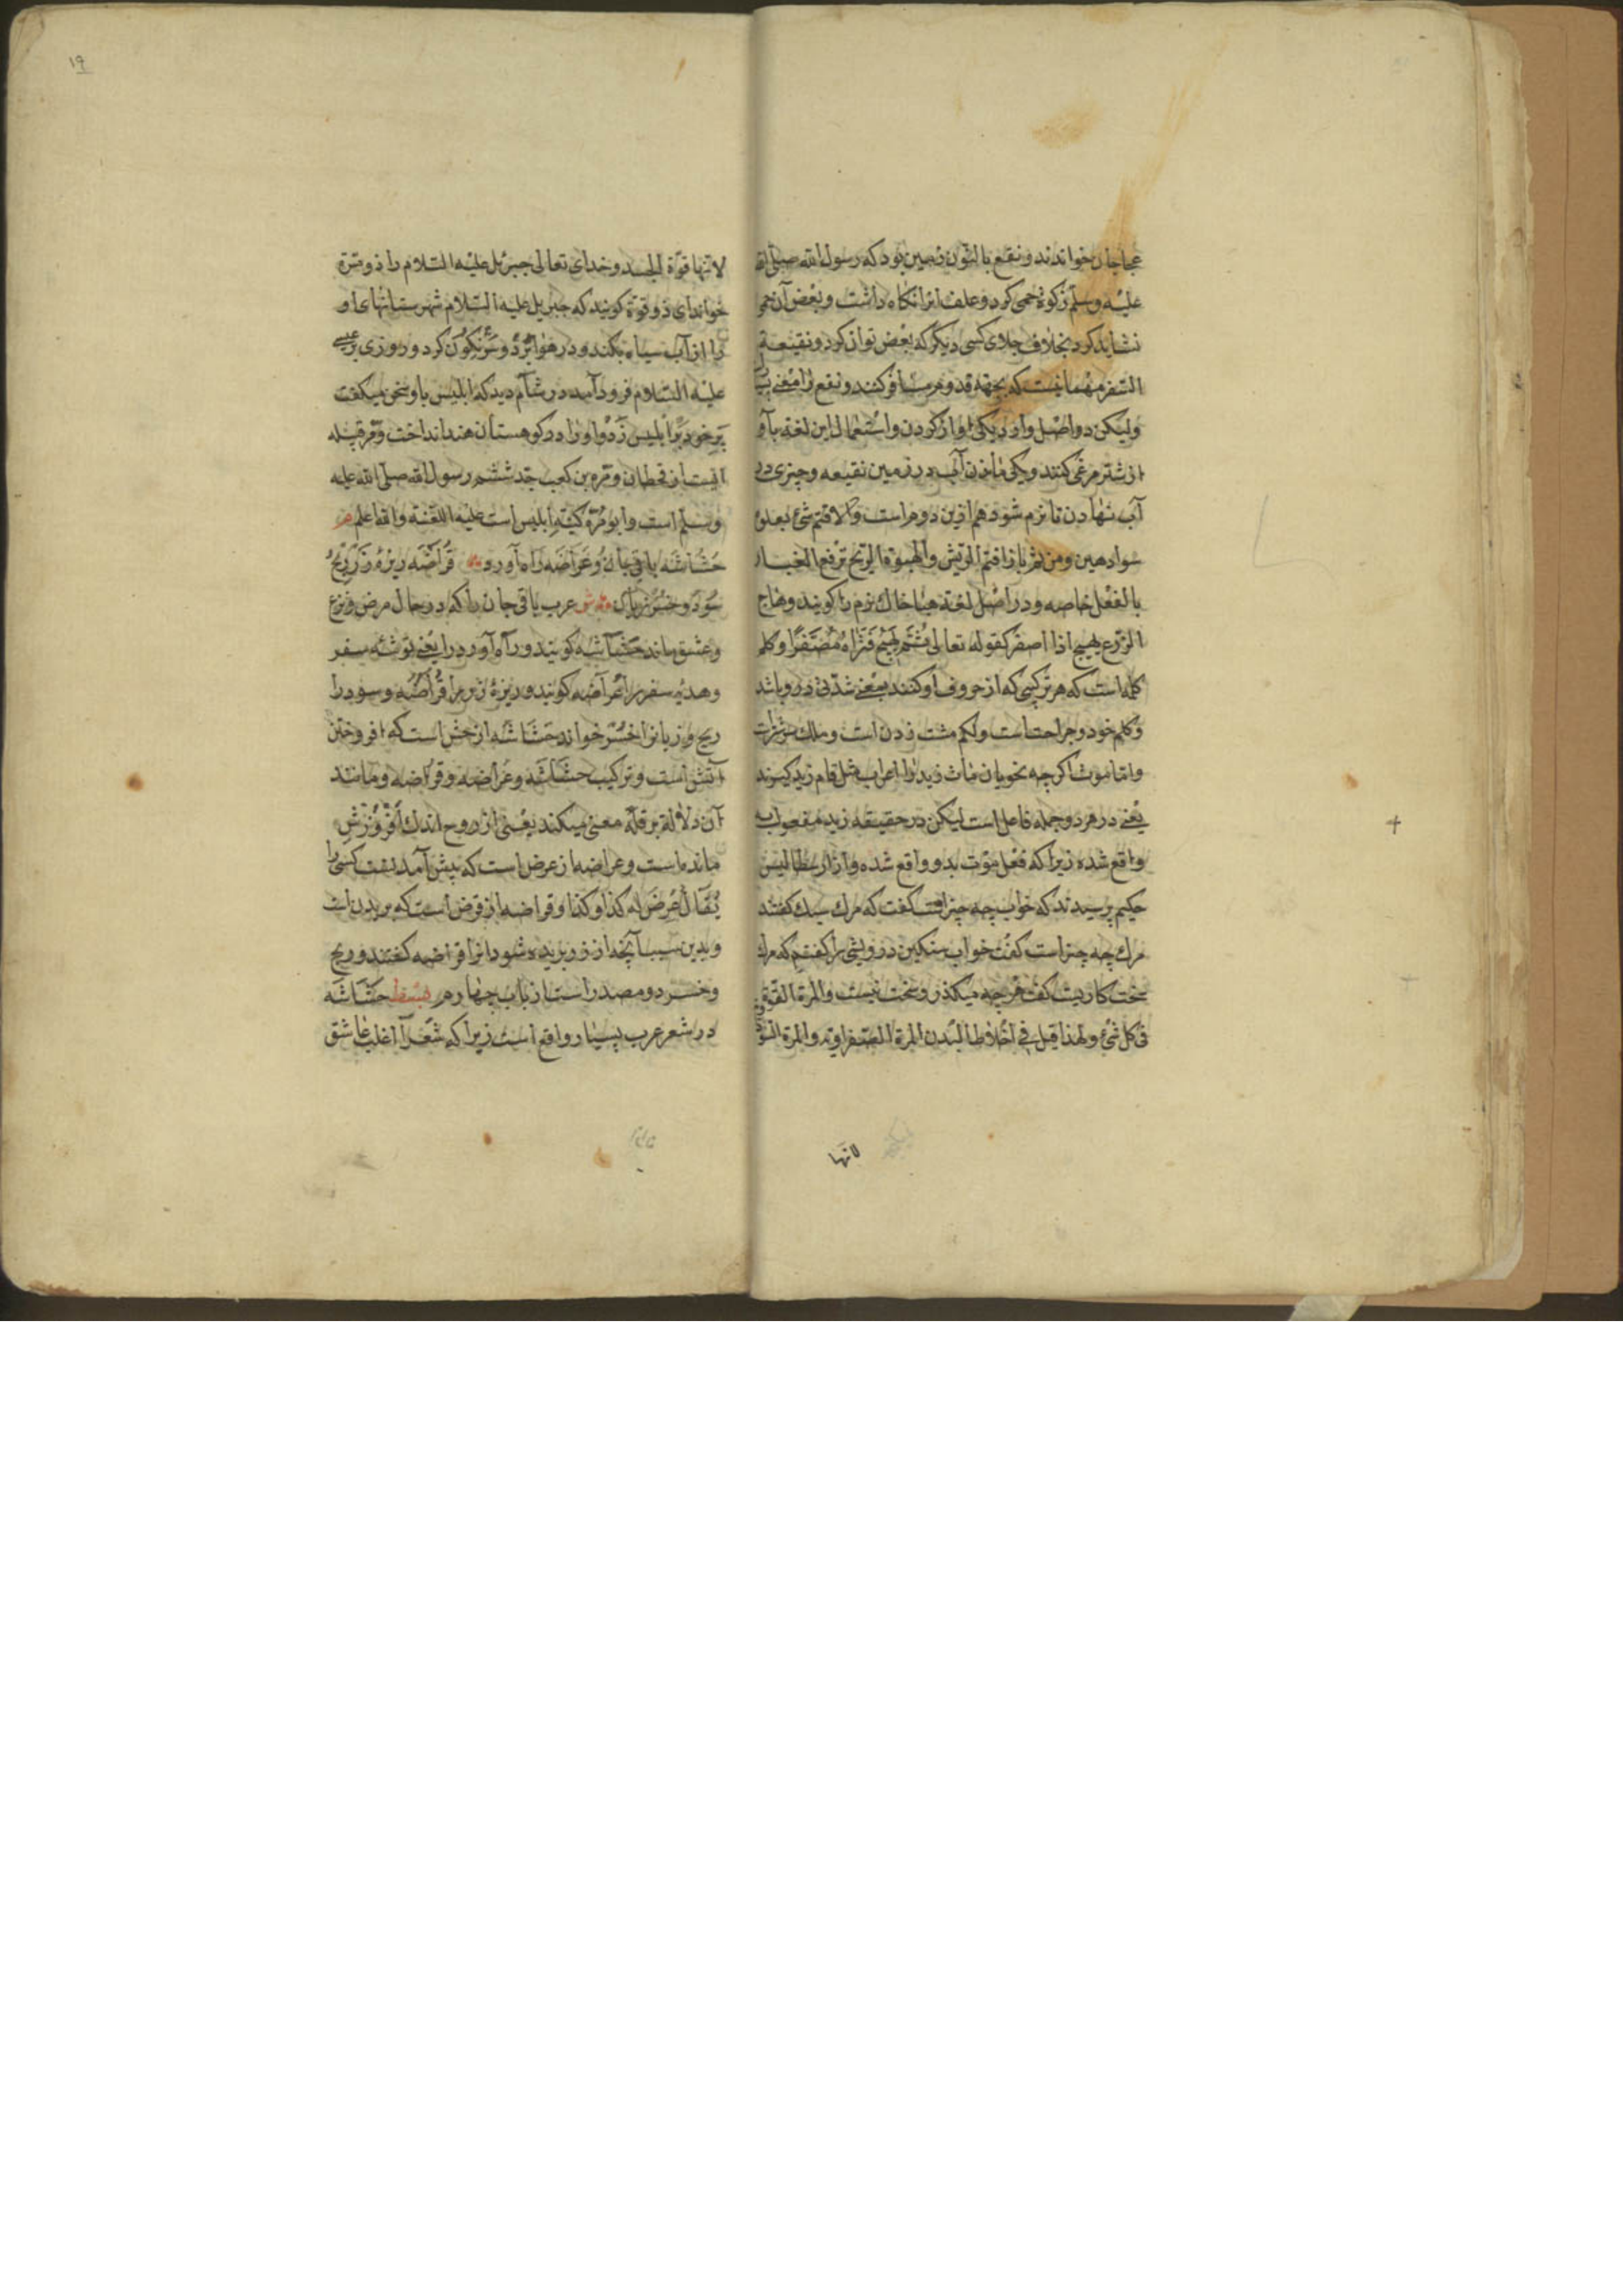 عجاجان خواندند و نقیع بالنون زمین بود که رسول الله صلی الله
علیه و سلم زکوة حمی کرد و علف انرا نکاه داشت و بعض آن حمی
نشاید کرد بخلاف جلای کسی دیگر که بعض توان کرد و نقیعة
السفر مهمانیست که بجهة قدوم مسافر کنند و نقع را معنی
ولیکن دو اصل وارد یکی اواز کردن و استعمال این لغة با
از شتر مرغ کنند و یکی ماندن آب در زمین نقیعه و چیزی در
آب نهادن تا نرم شود هم ازین دوم است
سوادهین ومن ثم بازا قتم الریش والهبوة الریح ترفع الغبار
بالفعل خاصه و در اصل لغة هبا خاک نرم را کویند و هاج
الزرع یهیج اذا اصفر کقوله تعالی ثم یهیج فتراه مصفرا و کلم
کلمه است که هر ترکیبی که از حروف او کنند بمعنی شدتی درو باشد
و کلم خود و جراحتست ولکم مشت زدن است و ملک
و اما موت اکرچه نحویان مات زید را اعراب مثل قام زید کیرند
یعنی در هر دو جمله فاعل است لیکن در حقیقه زید مفعول به
واقع شده زیرا که فعل موت بدو واقع شده و از ارسطاطالیس
حکیم پرسیدند که خواب چه چیز است گفت که مرک سبک گفتند
مرک چه چیز است گفت خواب سنکین درویشی را گفتم که مرک
سخت کاریست گفت هرچه میکذرد سخت نیست والمرة القوة
فی کل شئ ولهذا قیل فی اخلاط البدن المرة الصفراویة والمرة
لانها
لانها قوة الجسد و خدای تعالی جبرئل علیه السلام را ذو مرة
خواند ای ذو قوة کویند که جبریل علیه السلام شهرستانهای
را از آب سیاه بکند و در هوا برد و سرنکون کرد و روزی بر عیسی
علیه السلام فرود آمد در شام دید که ابلیس با و سخن میکفت
پر خود بر ابلیس زد و او را در کوهستان هند انداخت و مره قبیله
ایست از قحطان و مرة بن کعب جد ششم رسول الله صلی الله علیه
وسلم است وابو مرة کنیه ابلیس است علیه اللعنة والله اعلم م
حشاشه باقی جان و عراضه راه آورد قراضه ریزه زر ربح
سود و خسر زیان ش عرب باقی جان را که در حال مرض و نزع
و عشق ماند حشاشه کویند و راه آورد را یعنی توشه سفر
و هدیه سفر را عراضه کویند و ریزه زر را قراضه و سود را
ربح و زیانرا خسر خوانند حشاشه از حش است که افروختن
آتش است و ترکیب حشاشه و عراضه و قراضه و مانند
آن دلالة بر قلة معنی میکند یعنی از روح اندک افروزش
مانده است و عراضه از عرض است که پیش آمدنست کسی را
یقال عرض له کذا و کذا و قراضه از قرض است که بریدن است
و بدین سبب آنچه از زر بریده شود انرا قراضه گفتند و ربح
و خسر دو مصدر است از باب چهارم حشاشه
در شعر عرب بسیار واقع است زیرا که شعرا اغلب عاشق
۱۹